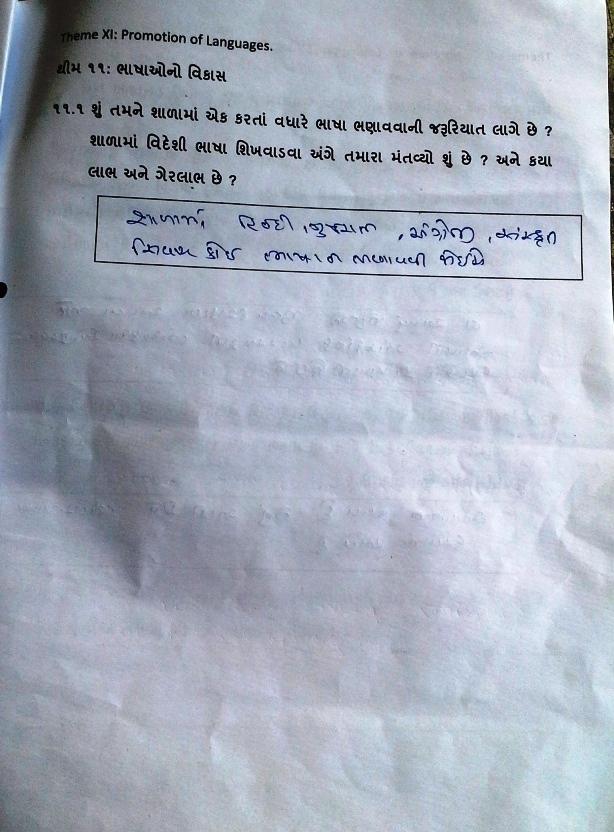 Theme XI: Promotion of Languages.
થીમ ૧૧: ભાષાઓનો વિકાસ
૧૧.૧ શું તમને શાળામાં એક કરતાં વધારે ભાષા ભણાવવાની જરૂરિયાત લાગે છે ?
શાળામાં વિદેશી ભાષા શિખવાડવા અંગે તમારા મંતવ્યો શું છે ? અને કયા
લાભ અને ગેરલાભ છે ?
શાળામાં હિન્દી, ગુજરાતી, અંગ્રેજી, સંસ્કૃત
સિવાય કોઈ ભાષા ન ભણાવવી જોઈએ